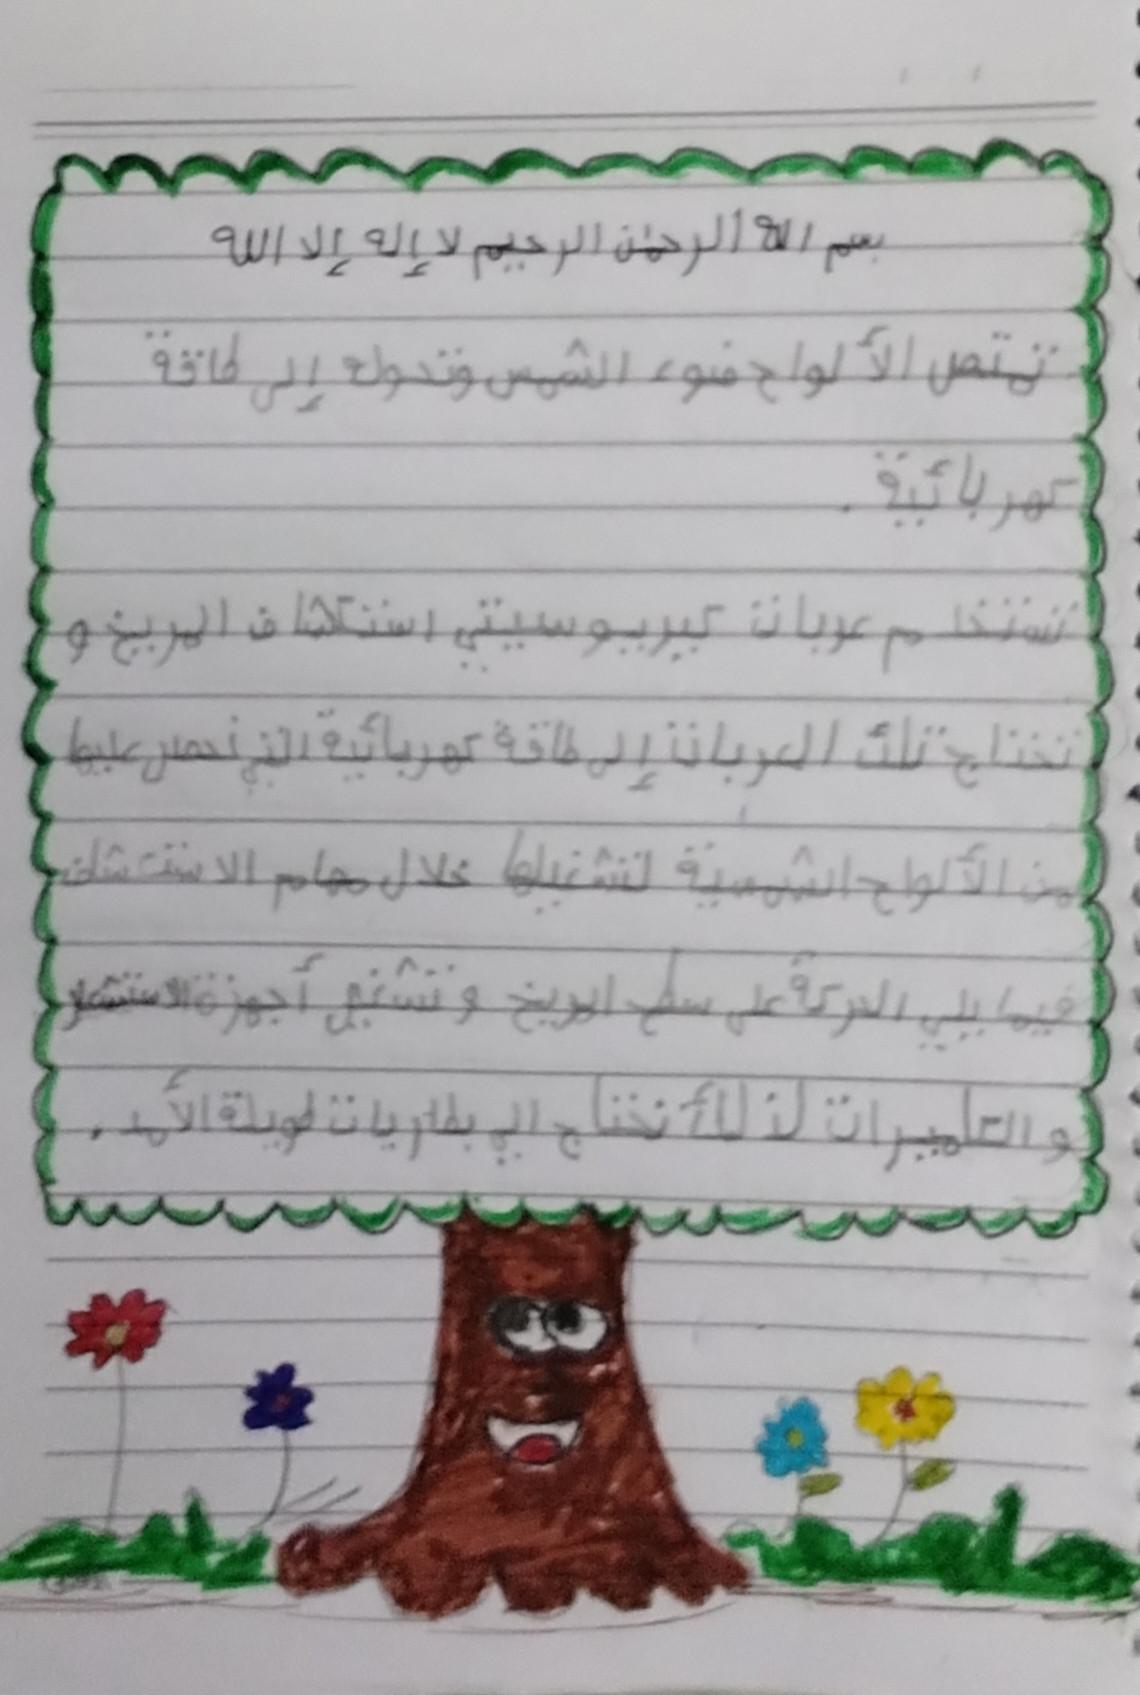 بسم الله الرحمن الرحيم لا إله إلا الله
تمتص الألواح ضوء الشمس وتحوله إلى طاقة
كهربائية .
تستخدم عربات كيريوسيتي استكشاف المريخ و
تحتاج تلك العربات إلى طاقة كهربائية التي نحصل عليها
من الألواح الشمسية لتشغيلها خلال مهام
فيما يلي الحركة على سطح المريخ و تشغيل أجهزة
و الكاميرات نحتاج الي بطاريات طويلة الأمد .